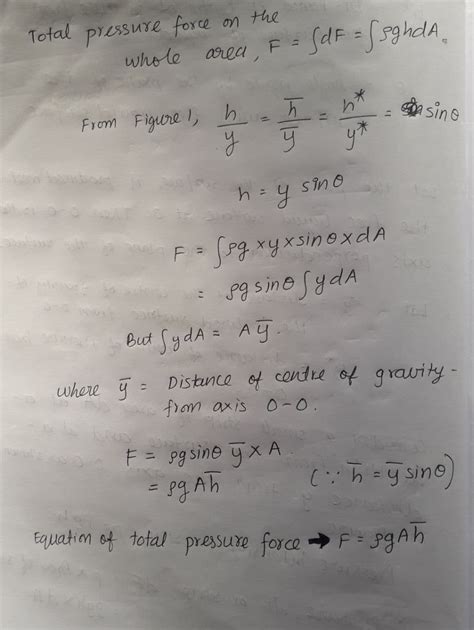 Total pressure force on the
whole area, F = ∫dF = ∫ρghdA.
From Figure 1, h/y = h̅/y̅ = h*/y* = sinθ
h = y sinθ
F = ∫ρg×y×sinθ×dA
= ρg sinθ ∫ydA
But ∫ydA = Ay̅.
where y̅ = Distance of centre of gravity-
from axis O-O.
F = ρgsinθ y̅ × A
= ρg Ah̅ (∵ h̅ = y̅ sinθ)
Equation of total pressure force → F = ρgAh̅